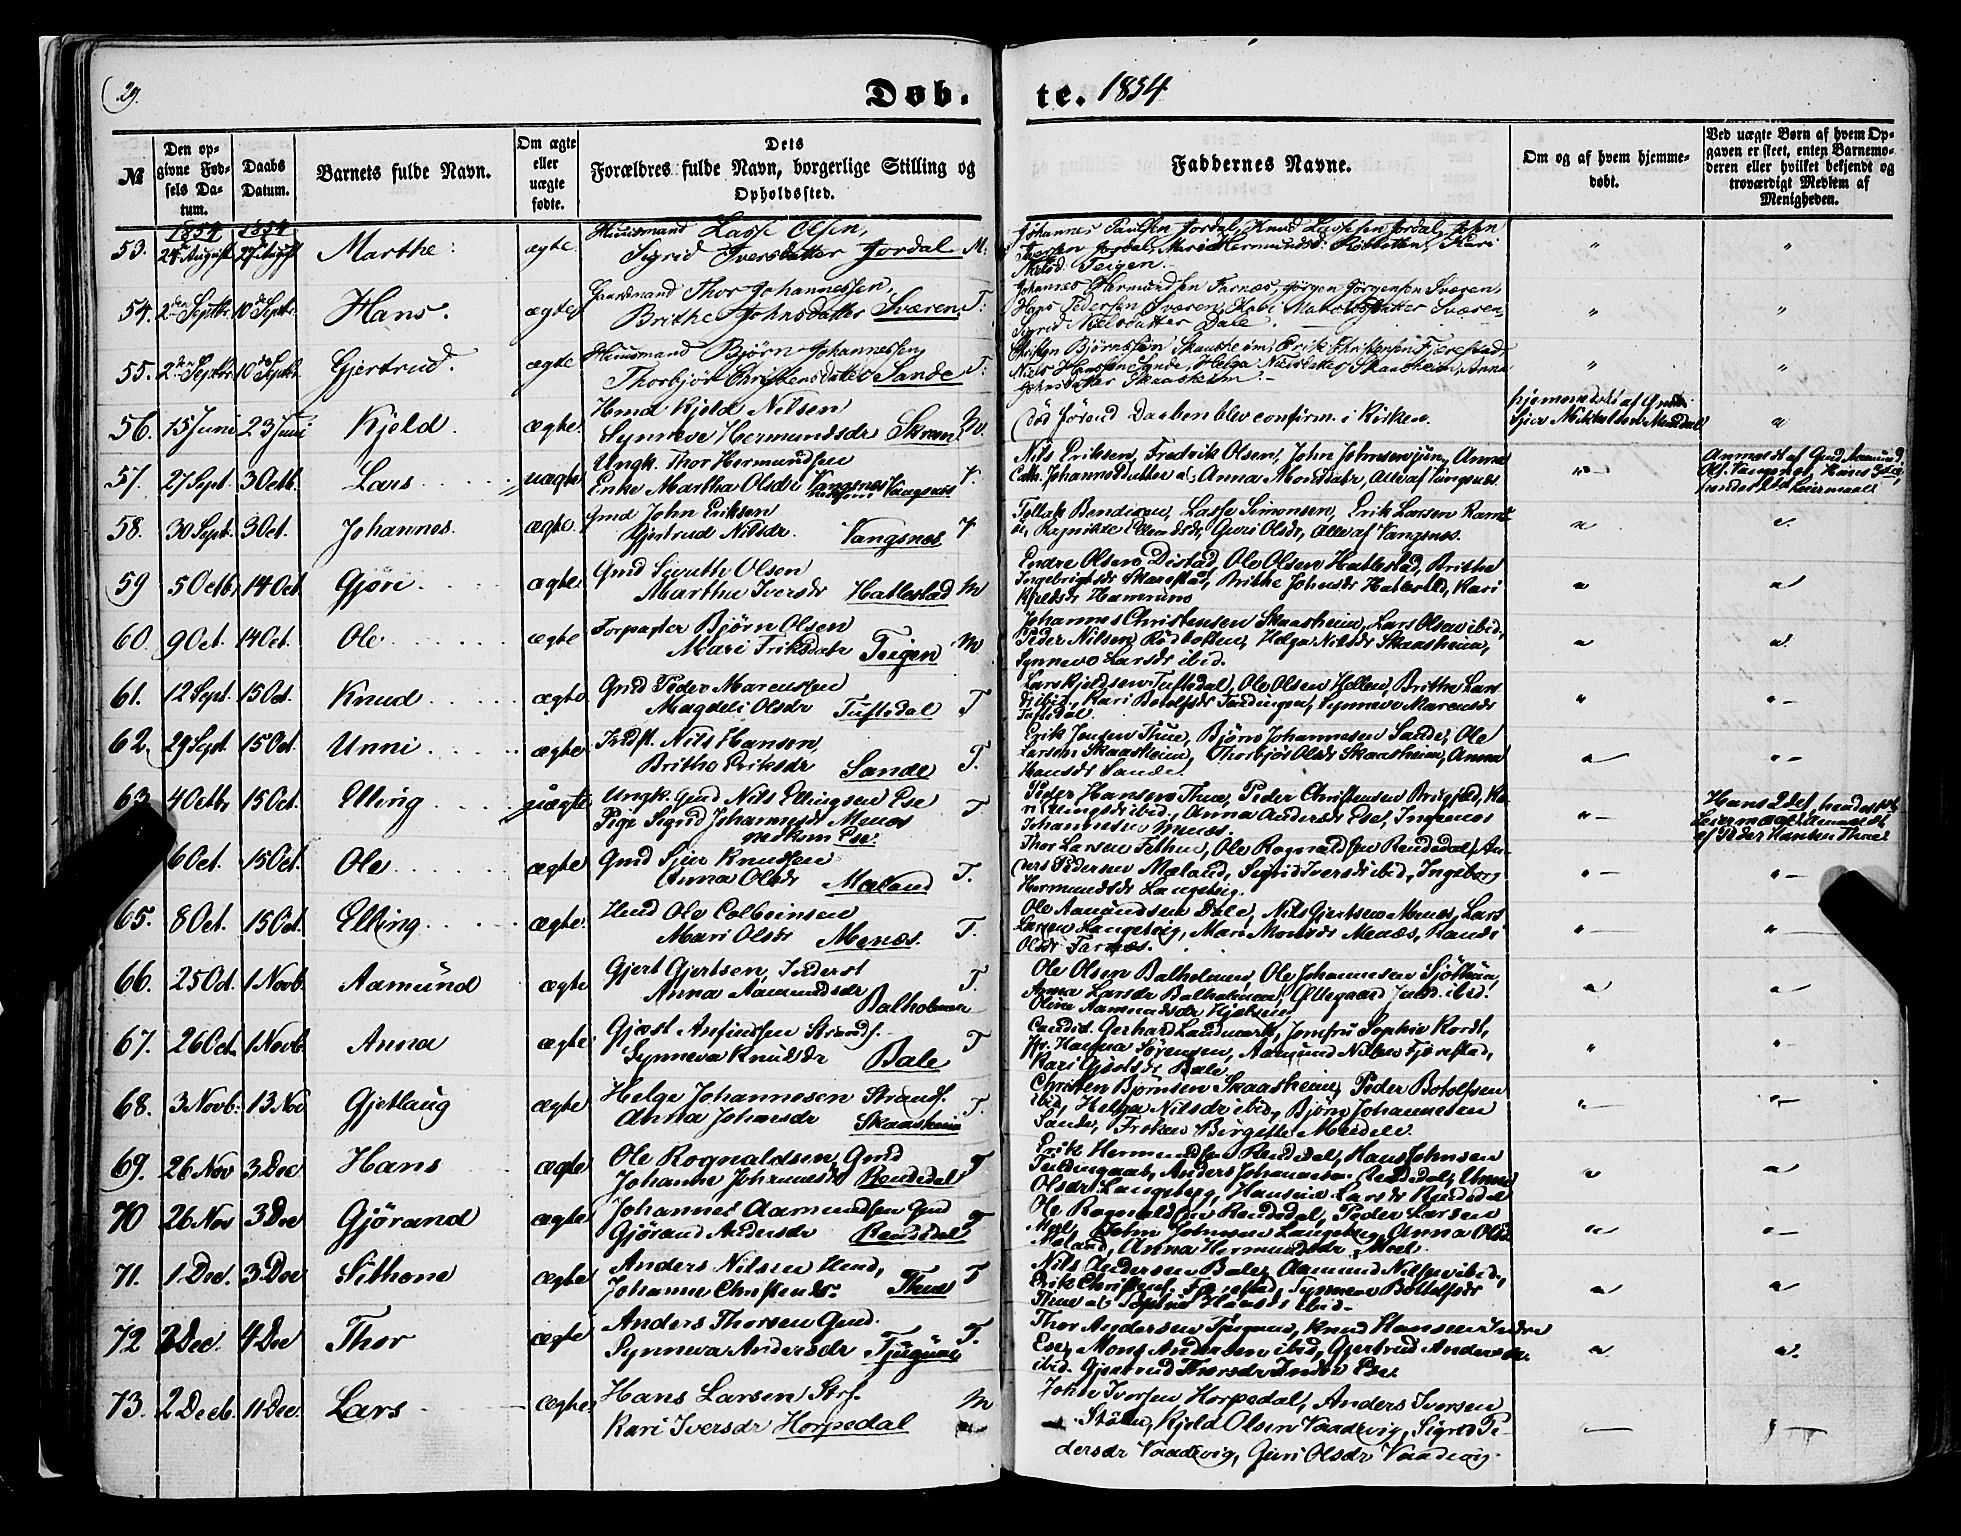 29.
Døb.
te. 1854
№
Den op-
givne Fød-
sels Da-
tum.
Daabs
Datum.
Barnets fulde Navn.
Om ægte
eller
uægte
fødte.
Dets
Forældres fulde Navn, borgerlige Stilling og
Opholdssted.
Faddernes Navne.
Om og af hvem hjemme-
døbt.
Ved uægte Børn af hvem Op-
gaven er skeet, enten Barnemo-
deren eller hvilket bekjendt og
troværdigt Medlem af
Menigheden.
1854 1854
53. 24 August 27 August Marthe: ægte Huusmand Lasse Olsen,
Sigrid Iversdatter Jordal M:
Johannes Paulsen Jordal, Knud Lassesen Jordal, John
Iversen Jordal, Mari Hermundsd: Kari
Nielsd. Teigen.
54. 2den Septbr. 10de Septbr. Hans. ægte Gaardmand Thor Johannessen,
Brithe Johnsdatter Sværen T:
Johannes Hermundsen Farnæs, Jørgen Jørgensen Sværen,
Hans Pedersen Sværen, Kari Sværen
Sigrid Nielsdatter Dale.
55. 2den Septbr. 10de Septbr. Gjertrud. ægte Huusmand Bjørn Johannessen,
Thorbjør Christensdatter Sande T:
Christen Bjørnssen Skaasheim, Erik Christensen Fjærestad
Niels Hanssen Sande, Helga Nielsdatter Skaasheim, Anna
Johnsdatter Skaasheim.
56. 15 Juni 23 Juni Kjeld ægte Hmd Kjeld Nilsen
Synneve Hermundsdr Skram M.
død førend Daaben blev confirm. i Kirken.
hjemmedøbt af Gmd
Sjur Nikkelsen Mundal
57. 27 Sept. 3 Octb. Lars uægte Ungk. Thor Hermundsen
Enke Martha Olsdr Vangsnes V.
Nils Eriksen, Fredrik Olsen, John Johnsen jun, Anna
Cath. Johannesdatter, Anna Monsdatr, Alle af Vangsnes
Anmeldt af Gmd Aamund
Olss. Vangsnes, Hans 1ste,
hendes 2det Leiermaal
58. 30 Sept. 3 Oct. Johannes. ægte Gmd John Eriksen
Gjertrud Nilsdr. Vangsnes V
Tollak Bendixen, Lasse Simonsen, Erik Larsen
Ragnilde Ellendsdr, Guri Olsdr, Alle af Vangsnes.
59 5 Octb. 14 Oct. Gjøri ægte Gmd Siurth Olsen
Martha Iversdr Hatlestad M
Endre Olsen Distad, Ole Olsen Hatlestad, Brithe
Ingebrigtsdr Skarestad, Brithe Johnsdr Hatlestd, Kari
Kjeldsdr Hamrum
60. 9 Oct. 14 Oct. Ole ægte Forpagter Bjørn Olsen
Mari Eriksdatr Teigen M
Johannes Christensen Skaasheim, Lars Olsen ibid,
Peder Nilsen Rødbotten, Helga Nilsdr Skaasheim,
Synnevo Larsdr ibid.
61. 12 Sept. 15 Oct. Knud ægte Gmd Peder Marcussen
Magdeli Olsdr Tuftedal T
Lars Kjeldsen Tuftedal, Ole Olsen Hellen, Brithe Lars
dr ibid, Kari Botolfsdr Fardingen, Synneve Marcusdr
Tuftedal.
62. 29 Sept. 15 Oct. Unni ægte Indst. Nils Hansen,
Britha Eriksdr Sande T.
Erik Jensen Thue, Bjørn Johannesen Sande, Ole
Larsen Skaasheim, Thorbjør Olsdr Skaasheim, Anna
Hansdr Sande.
63 4 Octbr 15 Oct. Elling uægte Ungk. Gmd Nils Ellingsen Ese
Pige Sigrid Johannesdr Menes
Ese. T
Peder Hansen Thue, Peder Christensen
Ellingsdr ibid, Anna Andersdr Ese, Ingr
Johannesen Menæs.
Hans 2det, hendes 1ste
Leiermaal Anmeldt
af Peder Hansen Thue
6 Oct. 15 Oct. Ole ægte Gmd Sjur Knudsen
Anna Olsdr Mæland T.
Thor Larsen Fethun, Ole Rognaldsen Rendedal, An-
ders Pedersen Mæland, Sigrid Iversdr ibid, Ingeborg
Hermundsdr Langeteig.
65. 8 Oct. 15 Oct. Elling ægte. Hmd Ole Colbeinsen
Mari Olsdr Menæs. T.
Ole Aamundsen Dale, Nils Gjertsen Menæs, Lars
Larsen Langeteig, Mari Monsdr Menæs, Randi
Olsdr Farnæs.
66. 25 Oct. 1 Novb. Aamund ægte Gjert Gjertsen, Inderst
Anna Aamundsdr Balholmen T.
Ole Olsen Balholmen, Ole Johannesen Sjøthun,
Anna Larsdr Balholmen, ibid.
Olina Aamundsdr
67. 26 Oct. 1 Novb. Anna ægte Gjøst Anfinssen Strands.
Synneva Knudsdr Bale T
Candid. Gerhard Landmark, Jomfru Sophie Kordt,
Jfr. Hanna Sørensen, Aamund Nilsen Fjærestad,
Kari Gjøstsdr Bale
68. 3 Novb. 13 Nov Gjetlaug ægte Helge Johannesen Strands.
Anna Johansdr Skaasheim T.
Christen Bjørnsen Skaasheim, Peder Botolfsen
ibid, Helga Nilsdr ibid, Bjørn Johannesen
Sande, Frøken Birgitte
69. 26 Nov 3 Dec Hans ægte Ole Rognaldsen, Gmd
Johanne Johannesdr Rendedal T
Erik Hermundsen Rendedal, Hans Johnsen
Anders Johannesen Rendedal, Anna
Olsdr Langeteig, Hansine Larsdr Rendedal
70 26 Nov 3 Dec Gjørand ægte Johannes Aamundsen Gmd
Gjørand Andersdr Rendedal T
Ole Rognaldsen Rendedal, Peder Larsen
Mæl, John Johnsen Langeteig, Anna Olsd
Mæland, Anna Hermundsdr Mæel.
71. 1 Dec. 3 Dec Sithone ægte Anders Nilsen Hmd,
Johanne Christensdr. Thue T
Nils Andersen Bale, Aamund Nilsen ibid,
Erik Christens. Fjærestad, Synneve Botolfsdr
Thue Hansdr ibid.
72 2 Dec. 4 Dec Thor ægte Anders Thorsen Gmd.
Synneva Andersdr Tjugum T.
Thor Andersen Tjugum, Knud Hansen Indre
Ese, Mons Andersen ibid, Gjertrud Andersdr
ibid. Gjertrud Thorsdr Indre Ese.
73. 2 Decb. 11 Dec. Lars ægte Hans Larsen Strs.
Kari Iversdr Horpedal M
John Iversen Horpedal, Anders Iversen
Stølen, Kjeld Olsen Vaadevig, Sigrid Pe-
dersdr Vaadevig, Guri Olsdr Vaadevig.